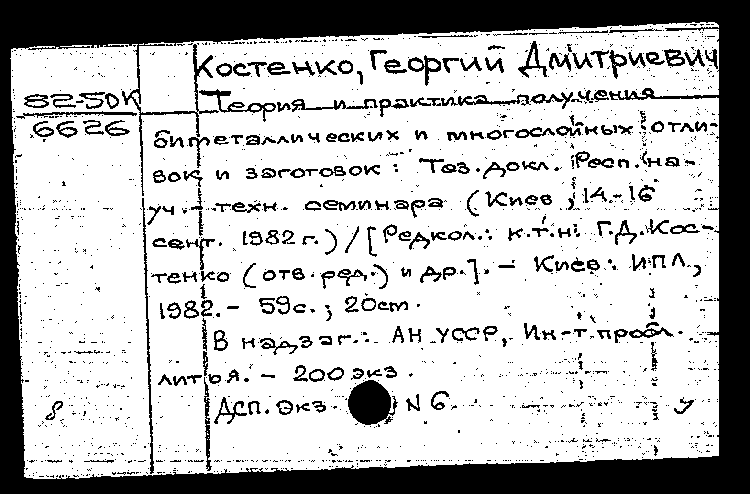 Костенко, Георгий Дмитриевич
82-5ДК
6626
Теория и практика получения
биметаллических и многослойных отли-
вок и заготовок: Тез. докл. Респ. на-
уч.-техн. семинара (Киев, 14.-16
сент. 1982 г.) / [Редкол.: к.т.н. Г.Д. Кос-
тенко (отв. ред.) и др.]. - Киев: ИПЛ,
1982. - 59с.; 20см.
В надзаг.: АН УССР, Ин-т пробл.
литья. - 200 экз.
8 Дсп. Экз. N 6 У